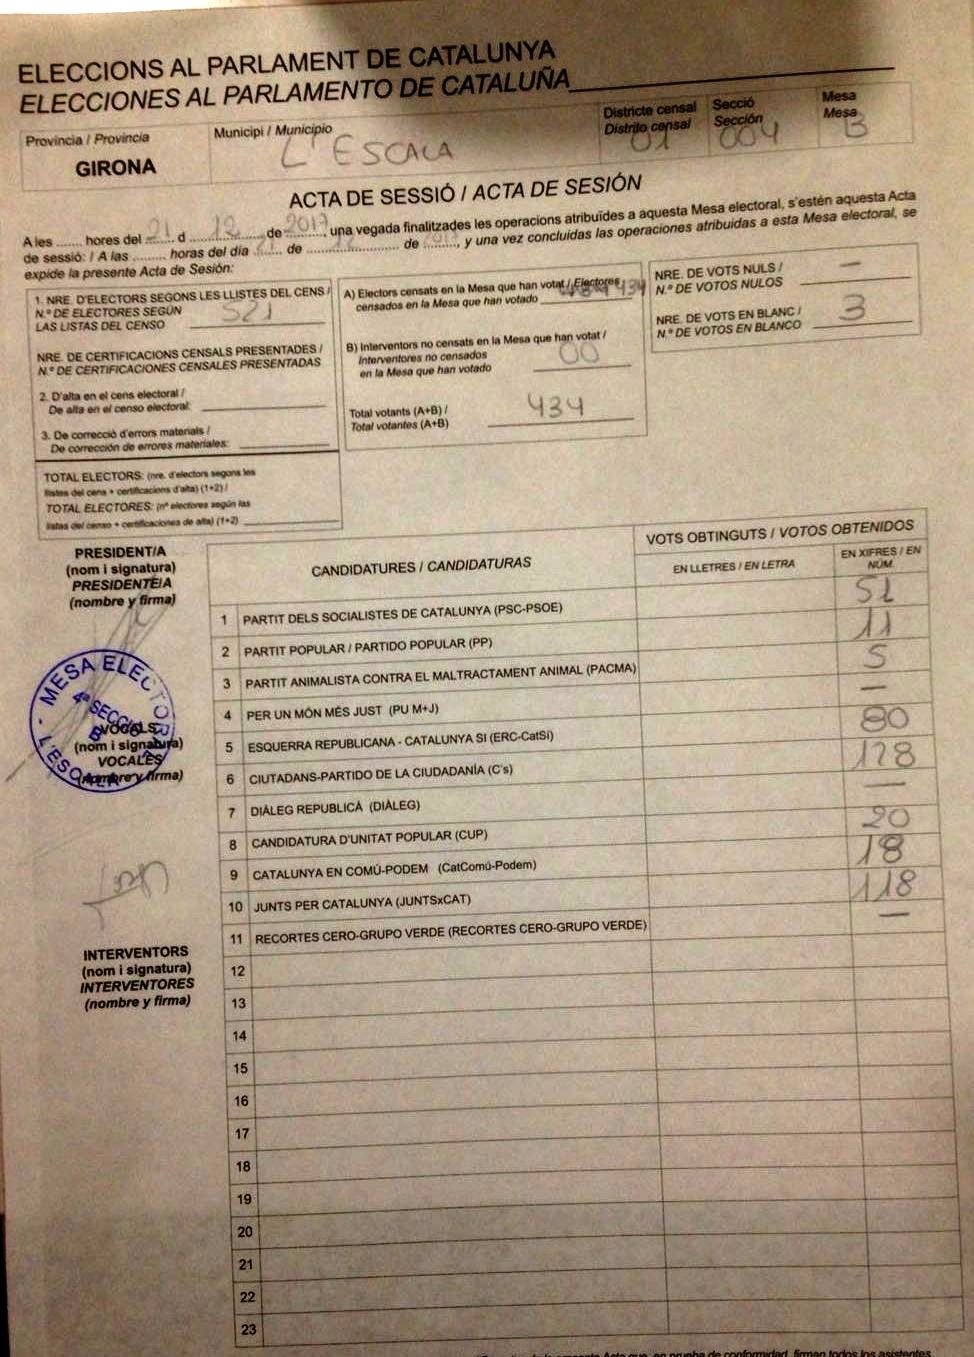 ELECCIONS AL PARLAMENT DE CATALUNYA
ELECCIONES AL PARLAMENTO DE CATALUÑA
Provincia / Provincia
GIRONA
Municipi / Municipio
L'ESCALA
Districte censal
Distrito censal
01
Secció
Sección
004
Mesa
Mesa
B
ACTA DE SESSIÓ / ACTA DE SESIÓN
A les ....... hores del 21 d 12 de 2017, una vegada finalitzades les operacions atribuïdes a aquesta Mesa electoral, s'estén aquesta Acta
de sessió: / A las ......... horas del día 21 de 12 de 2017, y una vez concluidas las operaciones atribuidas a esta Mesa electoral, se
expide la presente Acta de Sesión:
1. NRE. D'ELECTORS SEGONS LES LLISTES DEL CENS /
N.º DE ELECTORES SEGÚN
LAS LISTAS DEL CENSO 521
NRE. DE CERTIFICACIONS CENSALS PRESENTADES /
N.º DE CERTIFICACIONES CENSALES PRESENTADAS
2. D'alta en el cens electoral /
De alta en el censo electoral:
3. De correcció d'errors materials /
De corrección de errores materiales:
TOTAL ELECTORS: (nre. d'electors segons les
llistes del cens + certificacions d'alta) (1+2) /
TOTAL ELECTORES: (nº electores según las
listas del censo + certificaciones de alta) (1+2)
A) Electors censats en la Mesa que han votat / Electores
censados en la Mesa que han votado 434
B) Interventors no censats en la Mesa que han votat /
Interventores no censados
en la Mesa que han votado 00
Total votants (A+B) /
Total votantes (A+B) 434
NRE. DE VOTS NULS /
N.º DE VOTOS NULOS —
NRE. DE VOTS EN BLANC /
N.º DE VOTOS EN BLANCO 3
PRESIDENT/A
(nom i signatura)
PRESIDENTE/A
(nombre y firma)
MESA ELECTORAL
4ª SECCIÓ
B
L'ESCALA
VOCALS
(nom i signatura)
VOCALES
(nombre y firma)
INTERVENTORS
(nom i signatura)
INTERVENTORES
(nombre y firma)
CANDIDATURES / CANDIDATURAS
VOTS OBTINGUTS / VOTOS OBTENIDOS
EN LLETRES / EN LETRA
EN XIFRES / EN
NÚM.
1 PARTIT DELS SOCIALISTES DE CATALUNYA (PSC-PSOE) 51
2 PARTIT POPULAR / PARTIDO POPULAR (PP) 11
3 PARTIT ANIMALISTA CONTRA EL MALTRACTAMENT ANIMAL (PACMA) 5
4 PER UN MÓN MÉS JUST (PU M+J) —
5 ESQUERRA REPUBLICANA - CATALUNYA SI (ERC-CatSí) 80
6 CIUTADANS-PARTIDO DE LA CIUDADANÍA (C's) 128
7 DIÀLEG REPUBLICÀ (DIÀLEG) —
8 CANDIDATURA D'UNITAT POPULAR (CUP) 20
9 CATALUNYA EN COMÚ-PODEM (CatComú-Podem) 18
10 JUNTS PER CATALUNYA (JUNTSxCAT) 118
11 RECORTES CERO-GRUPO VERDE (RECORTES CERO-GRUPO VERDE) —
12
13
14
15
16
17
18
19
20
21
22
23
presente Acta que, en prueba de conformidad, firman todos los asistentes